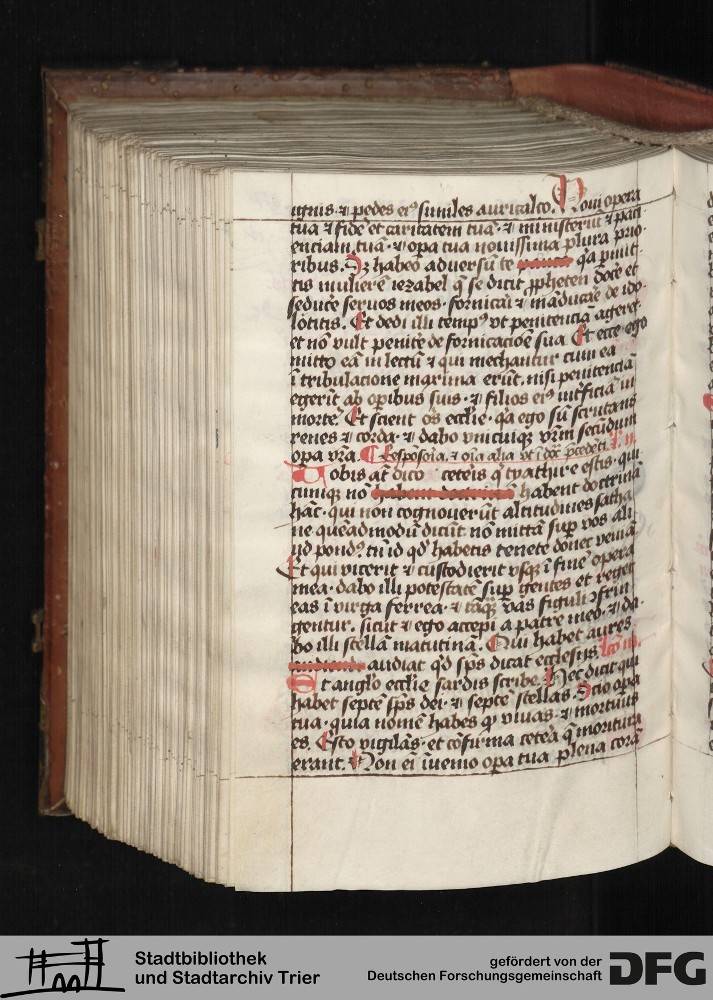 ignis· ⁊ pedes eiꝰ similes auricalco. Noui opera
tua ⁊ fidē et caritatem tuā· ⁊ ministeriū ⁊ paci
enciam tuā· ⁊ opa tua nouissima plura prio
ribus. Sꝫ habeo aduersū te qꝛ pmit
tis mulierē iezabel q̄ se dicit ꝓpheten docē et
seducē seruos meos· fornicari ⁊ māducāe de ido
lotitis. Et dedi illi tempꝰ vt penitenciā ageret
et nō vult penitē de fornicacōe sua. Et ecce ego
mitto eā in lectū ⁊ qui mechantur cum ea
ī tribulacione maxima erūt· nisi penitenciā
egerīt ab opibus suis· ⁊ filios eiꝰ int̄ficiā in
morte. Et scient oēs ecclīe· qa ego sū scrutans
renes ⁊ corda· ⁊ dabo vnicuiqꝫ vrm̄ secūdum
opa vr̄a. Respōsoria· ⁊ oīa alia vt ī dōca p̄cedēti.
Uobis at̄ dico ceteris q̄ tyathire estis· qui
cunqꝫ nō habent doctrinā
hāc· qui non cognouerūt altitudines satha
ne quēadmodū dicūt nō mittā sup vos ali
ud pondꝰ tn̄ id qd̓ habetis tenete donec veniā
Et qui vicerit ⁊ custodierit vsqꝫ ī finē opera
mea· dabo illi potestatē sup gentes et reget
eas ī virga ferrea· ⁊ tāqꝫ vas figuli ꝯfrin
gentur. sicut ⁊ ego accepi a patre meo· ⁊ da
bo illi stellā matutinā. Qui habet aures
audiat qd̓ sp̄s dicat ecclesijs
Et anglo ecclīe sardis scribe. Hec dicit qui
habet septē sp̄s dei· ⁊ septē stellas. Scio opa
tua· quia nomē habes qꝫ viuas· ⁊ mortuus
es. Esto vigilās· et cōfirma cetera q̄ moritura
erant. Non ei̅ īuenio opa tua plena corā
Stadtbibliothek
und Stadtarchiv Trier
gefördert von der
Deutschen Forschungsgemeinschaft
DFG